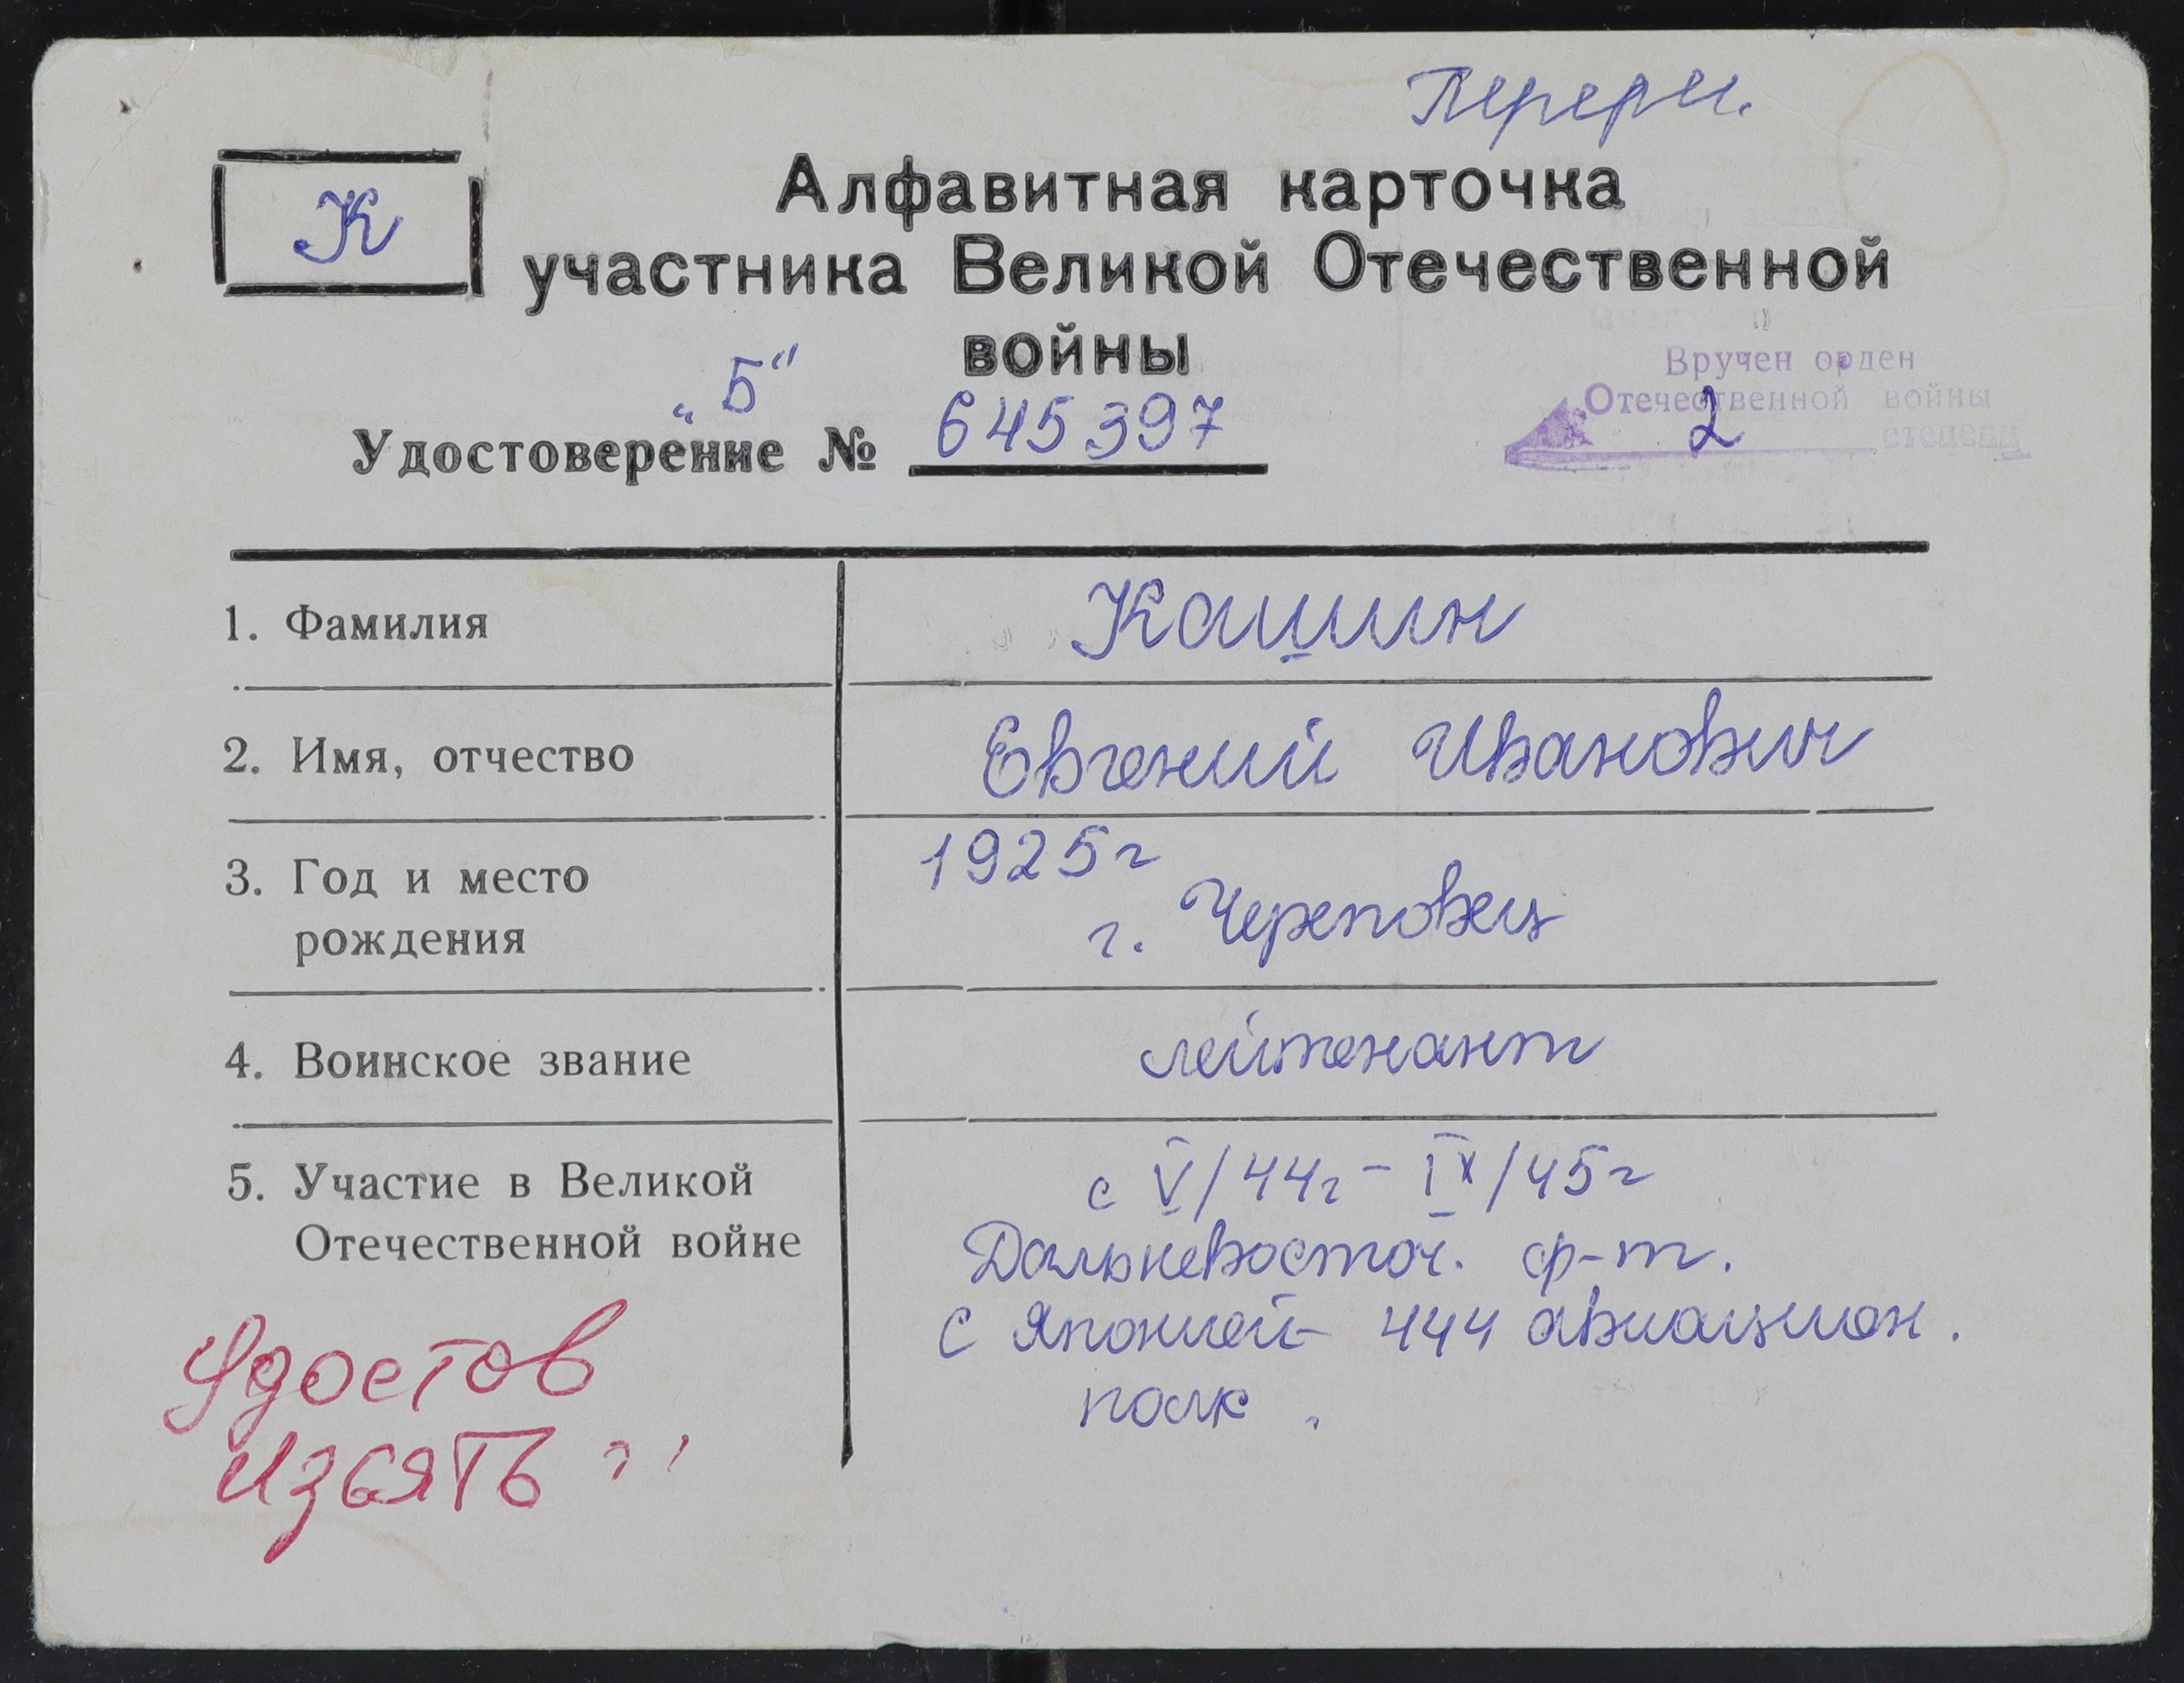 Перерег.
К
Алфавитная карточка
участника Великой Отечественной
войны
„Б"
Удостоверение № 645397
Вручен орден
Отечественной войны
2 степени
1. Фамилия Кашин
2. Имя, отчество Евгений Иванович
3. Год и место 1925г
рождения г. Череповец
4. Воинское звание лейтенант
5. Участие в Великой с V/44г - IX/45г
Отечественной войне Дальневосточ. ф-т.
с Японией - 444 авиацион.
полк.
Удостов
изъять